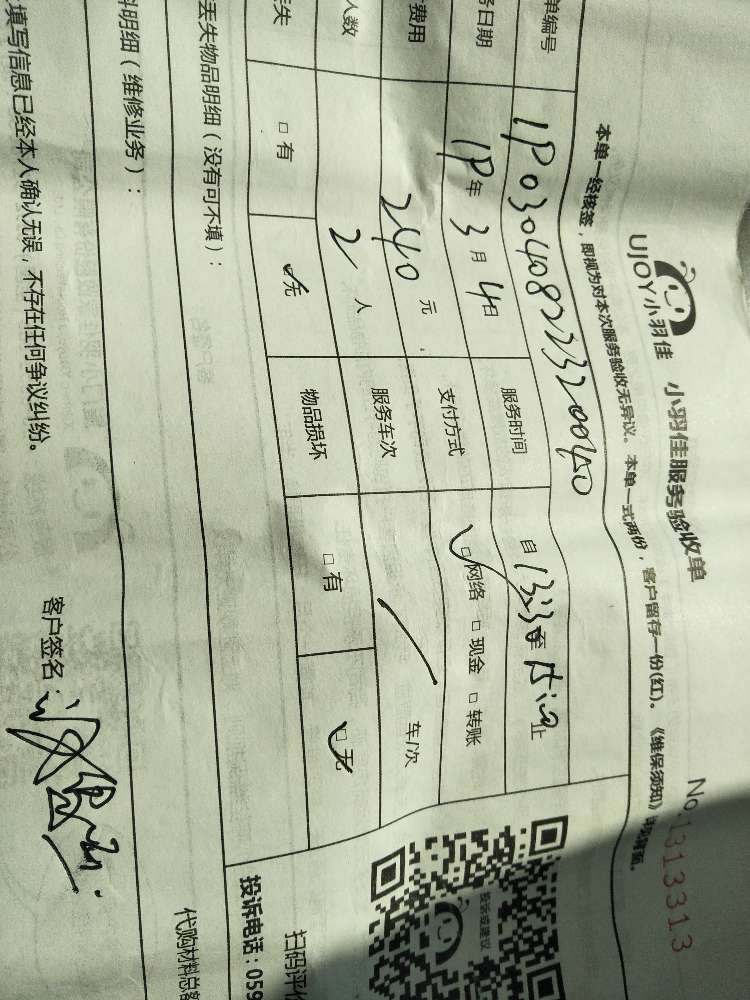 UJOY小羽佳 小羽佳服务验收单
No.1313313
本单一经核签，即视为对本次服务验收无异议。本单一式两份，客户留存一份(红)。《维保须知》
单编号 190304082233200450
务日期 19年3月4日 服务时间 自13:30至15:30止
费用 240元 支付方式 □网络 □现金 □转账
人数 2人 服务车次 / 车/次
丢失 □有 □无 物品损坏 □有 □无
丢失物品明细（没有可不填）：
料明细（维修业务）：
填写信息已经本人确认无误，不存在任何争议纠纷。
客户签名：
投诉或建议
扫码评价
投诉电话：059
代购材料总